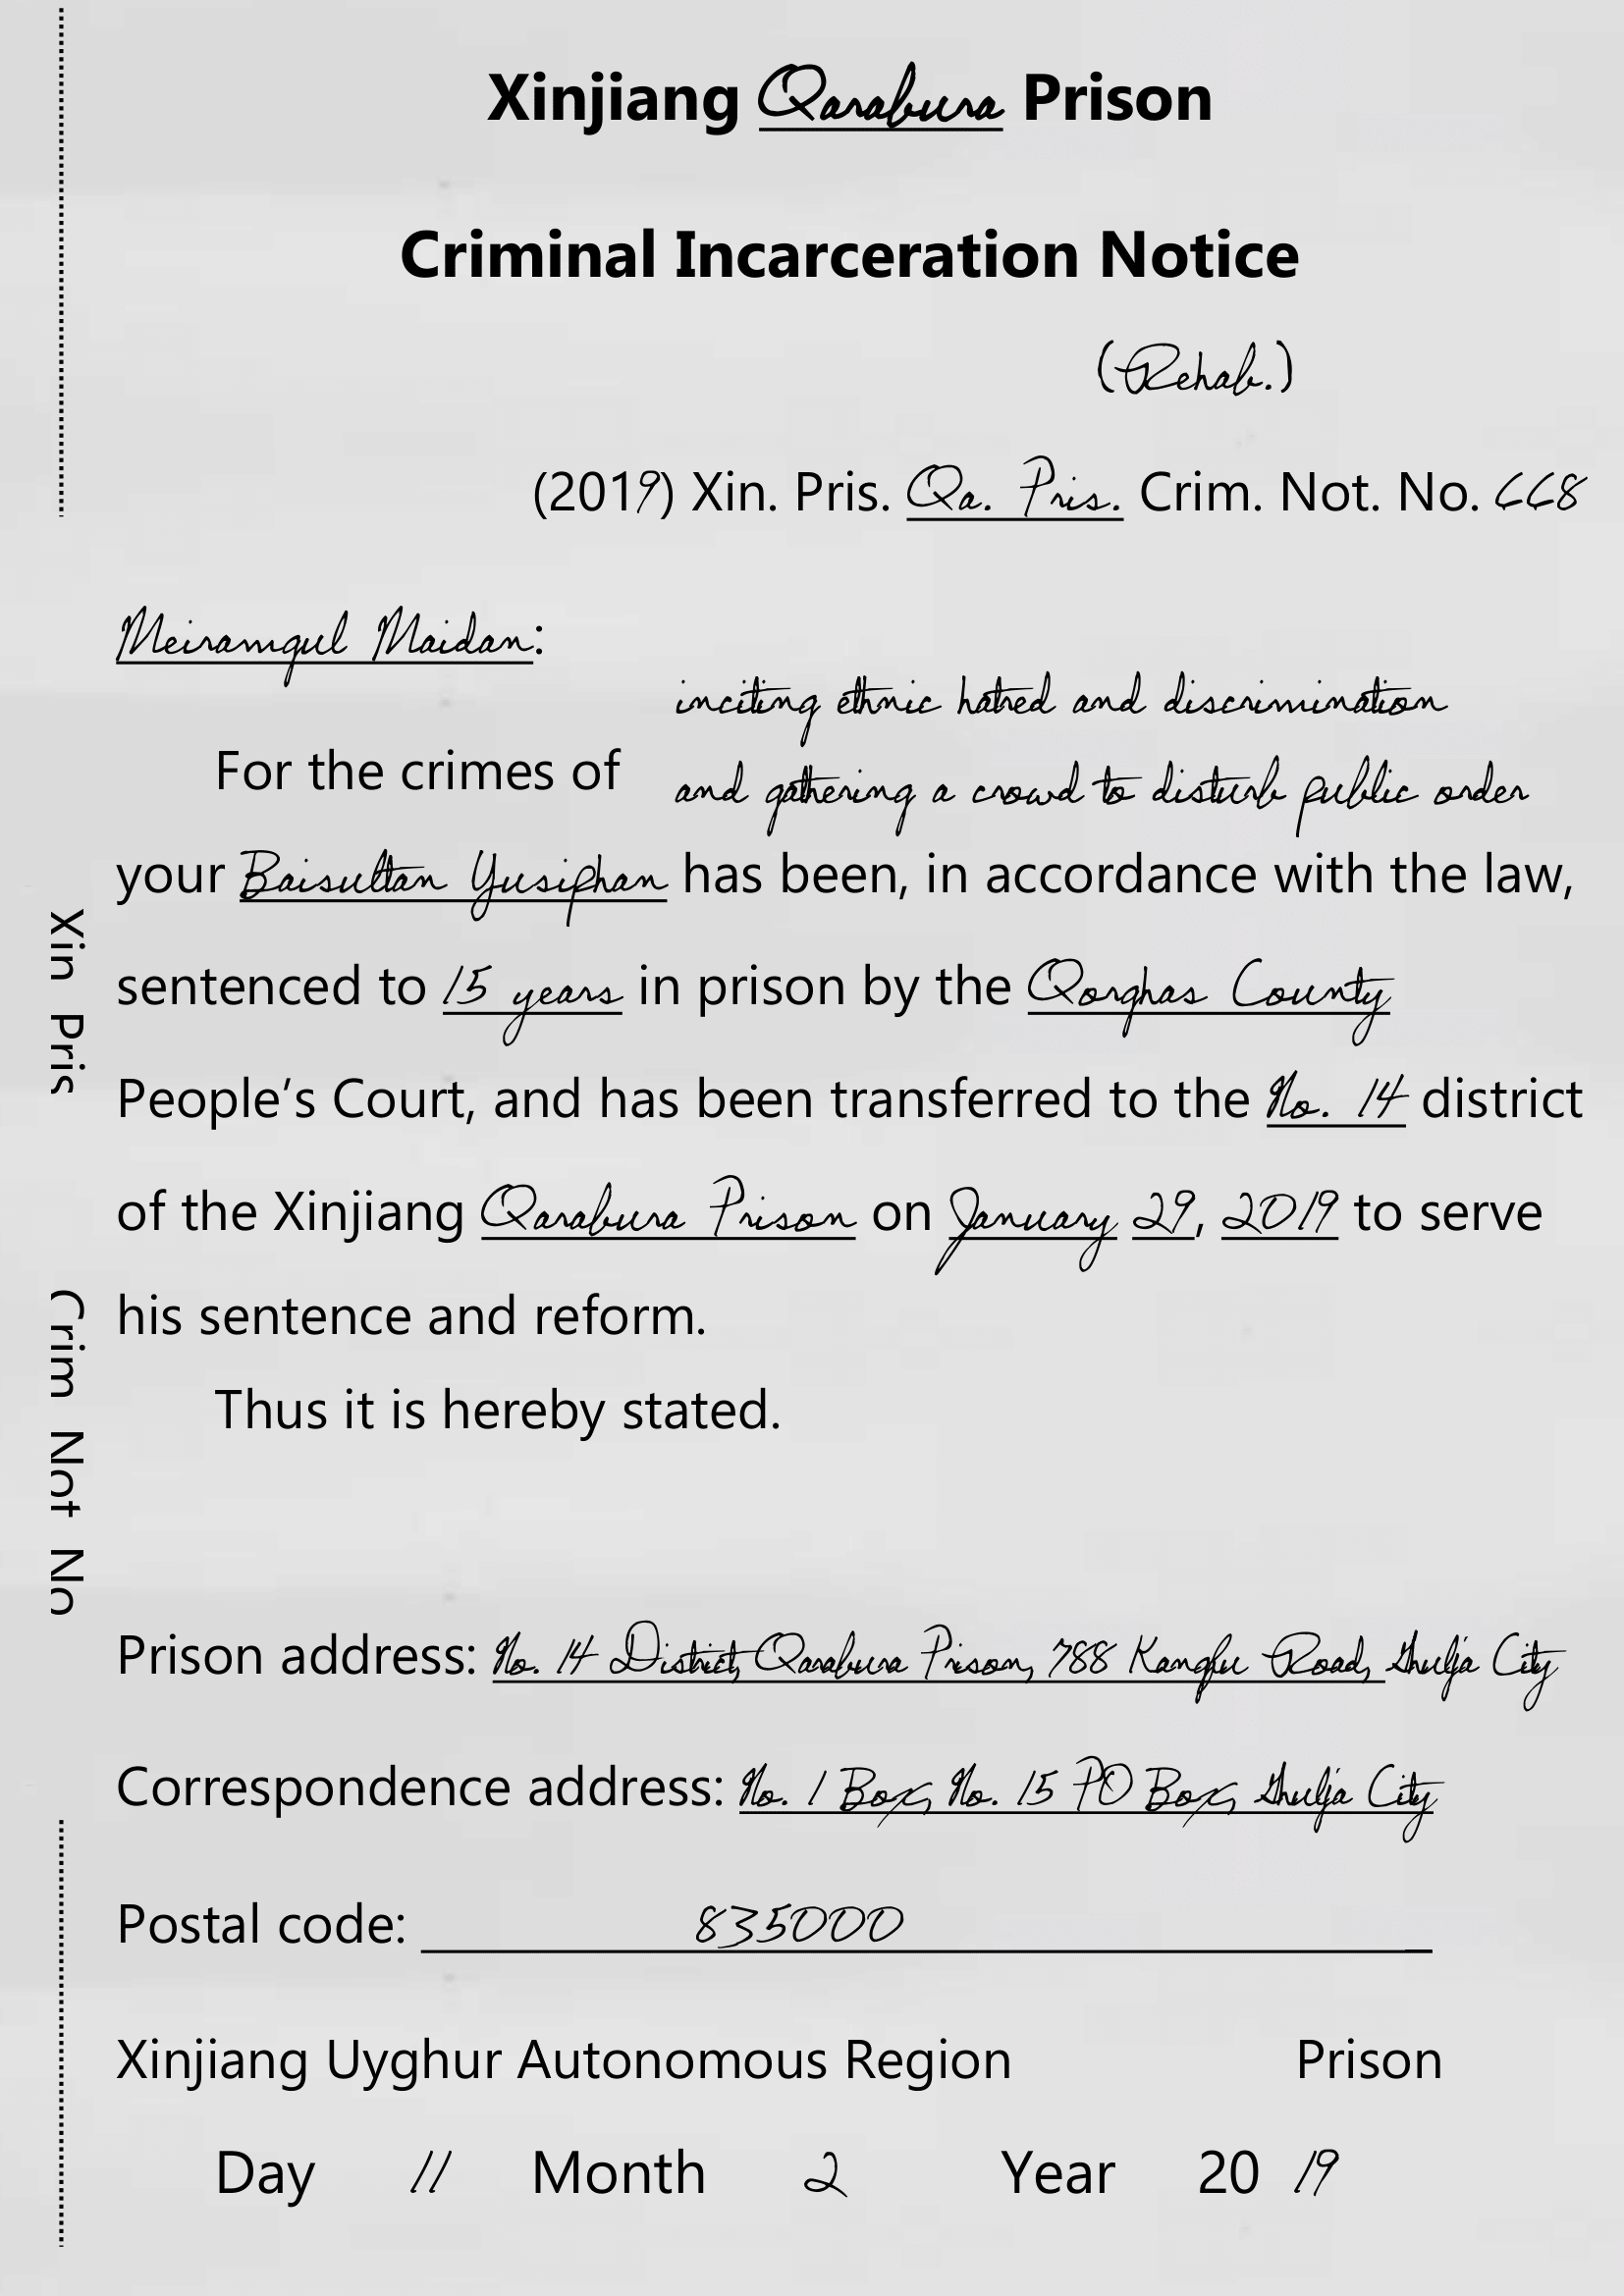 Xinjiang Qarabura Prison
Criminal Incarceration Notice
(Rehab.)
(2019) Xin. Pris. Qa. Pris. Crim. Not. No. 668
Meiramgul Maidan:
inciting ethnic hatred and discrimination
For the crimes of
and gathering a crowd to disturb public order
your Baisultan Yusiphan has been, in accordance with the law,
sentenced to 15 years in prison by the Qorghas County
People’s Court, and has been transferred to the No. 14 district
of the Xinjiang Qarabura Prison on January 29, 2019 to serve
his sentence and reform.
Thus it is hereby stated.
Prison address: No. 14 District, Qarabura Prison, 788 Kangfu Road, Ghulja City
Correspondence address: No. 1 Box, No. 15 PO Box, Ghulja City
Postal code: 835000
Xinjiang Uyghur Autonomous Region Prison
Day 11 Month 2 Year 2019
Xin Pris Crim Not No